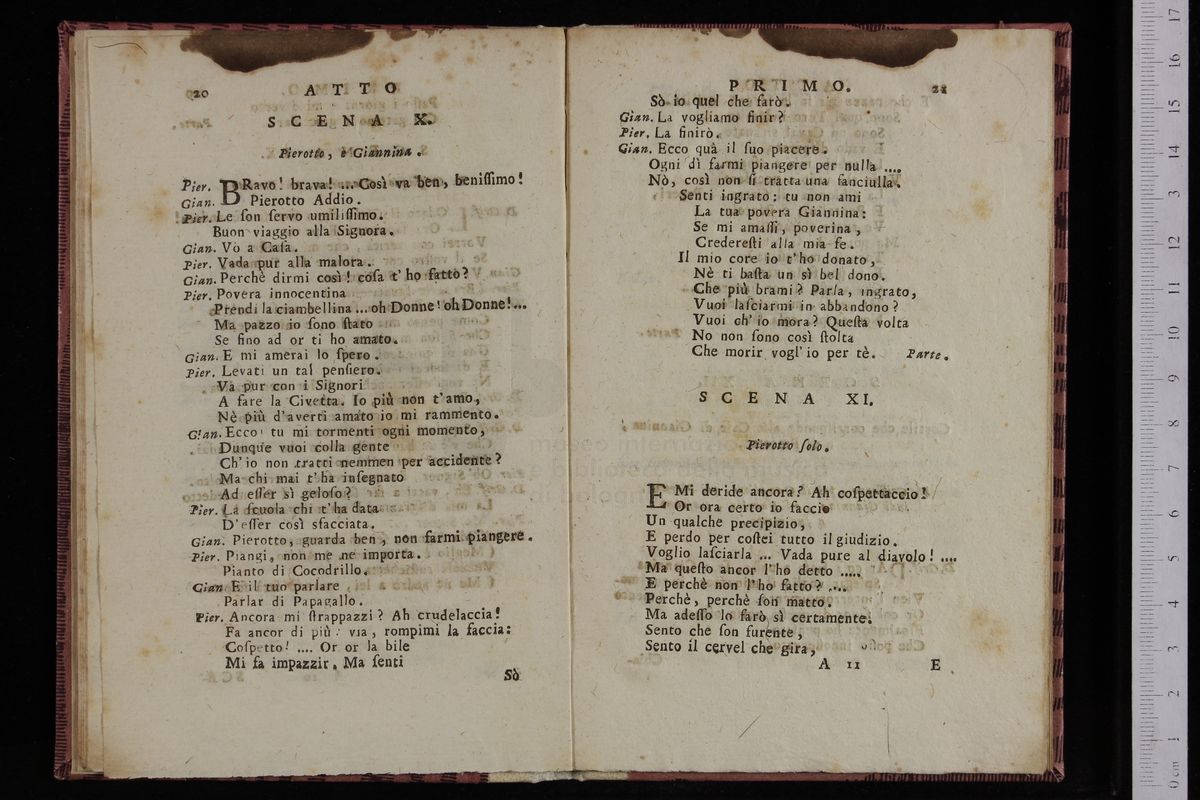 20 ATTO
SCENA X.
Pierotto, e Giannina.
Pier. BRavo! brava! ... Così va ben, beniſſimo!
Gian. Pierotto Addio.
Pier. Le ſon ſervo umiliſſimo.
Buon viaggio alla Signora.
Gian. Vò a Caſa.
Pier. Vada pur alla malora.
Gian. Perchè dirmi così! coſa t' ho fatto?
Pier. Povera innocentina
Prendi la ciambellina ... oh Donne! oh Donne!...
Ma pazzo io ſono ſtato
Se fino ad or ti ho amato.
Gian. E mi amerai lo ſpero.
Pier. Levati un tal penſiero.
Va pur con i Signori
A fare la Civetta. Io più non t'amo,
Nè più d'averti amato io mi rammento.
Gian. Ecco tu mi tormenti ogni momento,
Dunque vuoi colla gente
Ch' io non tratti nemmen per accidente?
Ma chi mai t' ha inſegnato
Ad eſſer sì geloſo?
Pier. La ſcuola chi t' ha data
D'eſſer così sfacciata.
Gian. Pierotto, guarda ben, non farmi piangere.
Pier. Piangi, non me ne importa.
Pianto di Cocodrillo.
Gian E il tuo parlare
Parlar di Papagallo.
Pier. Ancora mi ſtrappazzi? Ah crudelaccia!
Fa ancor di più: via, rompimi la faccia:
Coſpetto! .... Or or la bile
Mi fa impazzir. Ma ſenti
Sò
PRIMO. 21
Sò io quel che farò.
Gian. La vogliamo finir?
Pier. La finirò.
Gian. Ecco quà il ſuo piacere.
Ogni dì farmi piangere per nulla ....
Nò, così non ſi tratta una fanciulla.
Senti ingrato: tu non ami
La tua povera Giannina:
Se mi amaſſi, poverina,
Crederefti alla mia fe.
Il mio core io t'ho donato,
Nè ti baſta un sì bel dono.
Che più brami? Parla, ingrato,
Vuoi laſciarmi in abbandono?
Vuoi ch' io mora? Queſta volta
No non ſono così ſtolta
Che morir vogl' io per tè. Parte.
SCENA XI.
Pierotto ſolo.
E Mi deride ancora? Ah coſpettaccio!
Or ora certo io faccio
Un qualche precipizio,
E perdo per coſtei tutto il giudizio.
Voglio laſciarla ... Vada pure al diavolo! ....
Ma queſto ancor l'ho detto .....
E perchè non l'ho fatto? ....
Perchè, perchè ſon matto.
Ma adeſſo lo farò sì certamente.
Sento che ſon furente,
Sento il cervel che gira,
A 11 E